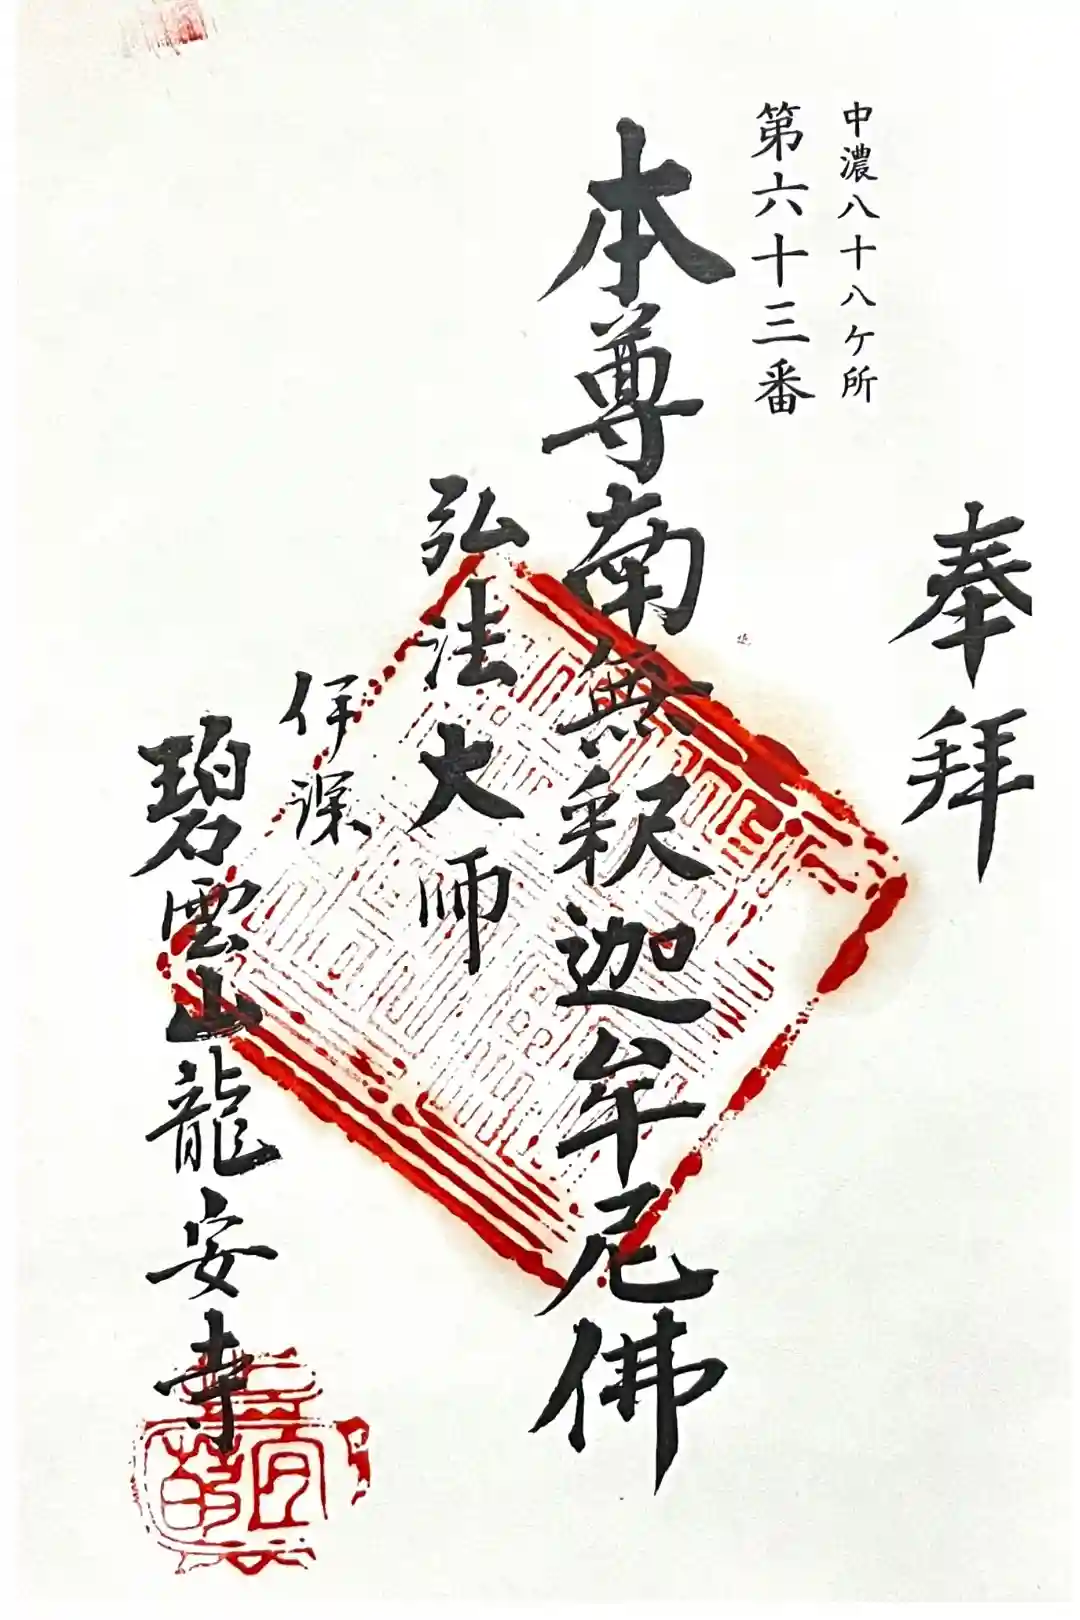 奉拜
中濃八十八ヶ所
第六十三番
本尊南無釈迦牟尼佛
弘法大师
伊深
碧雲山龍安寺